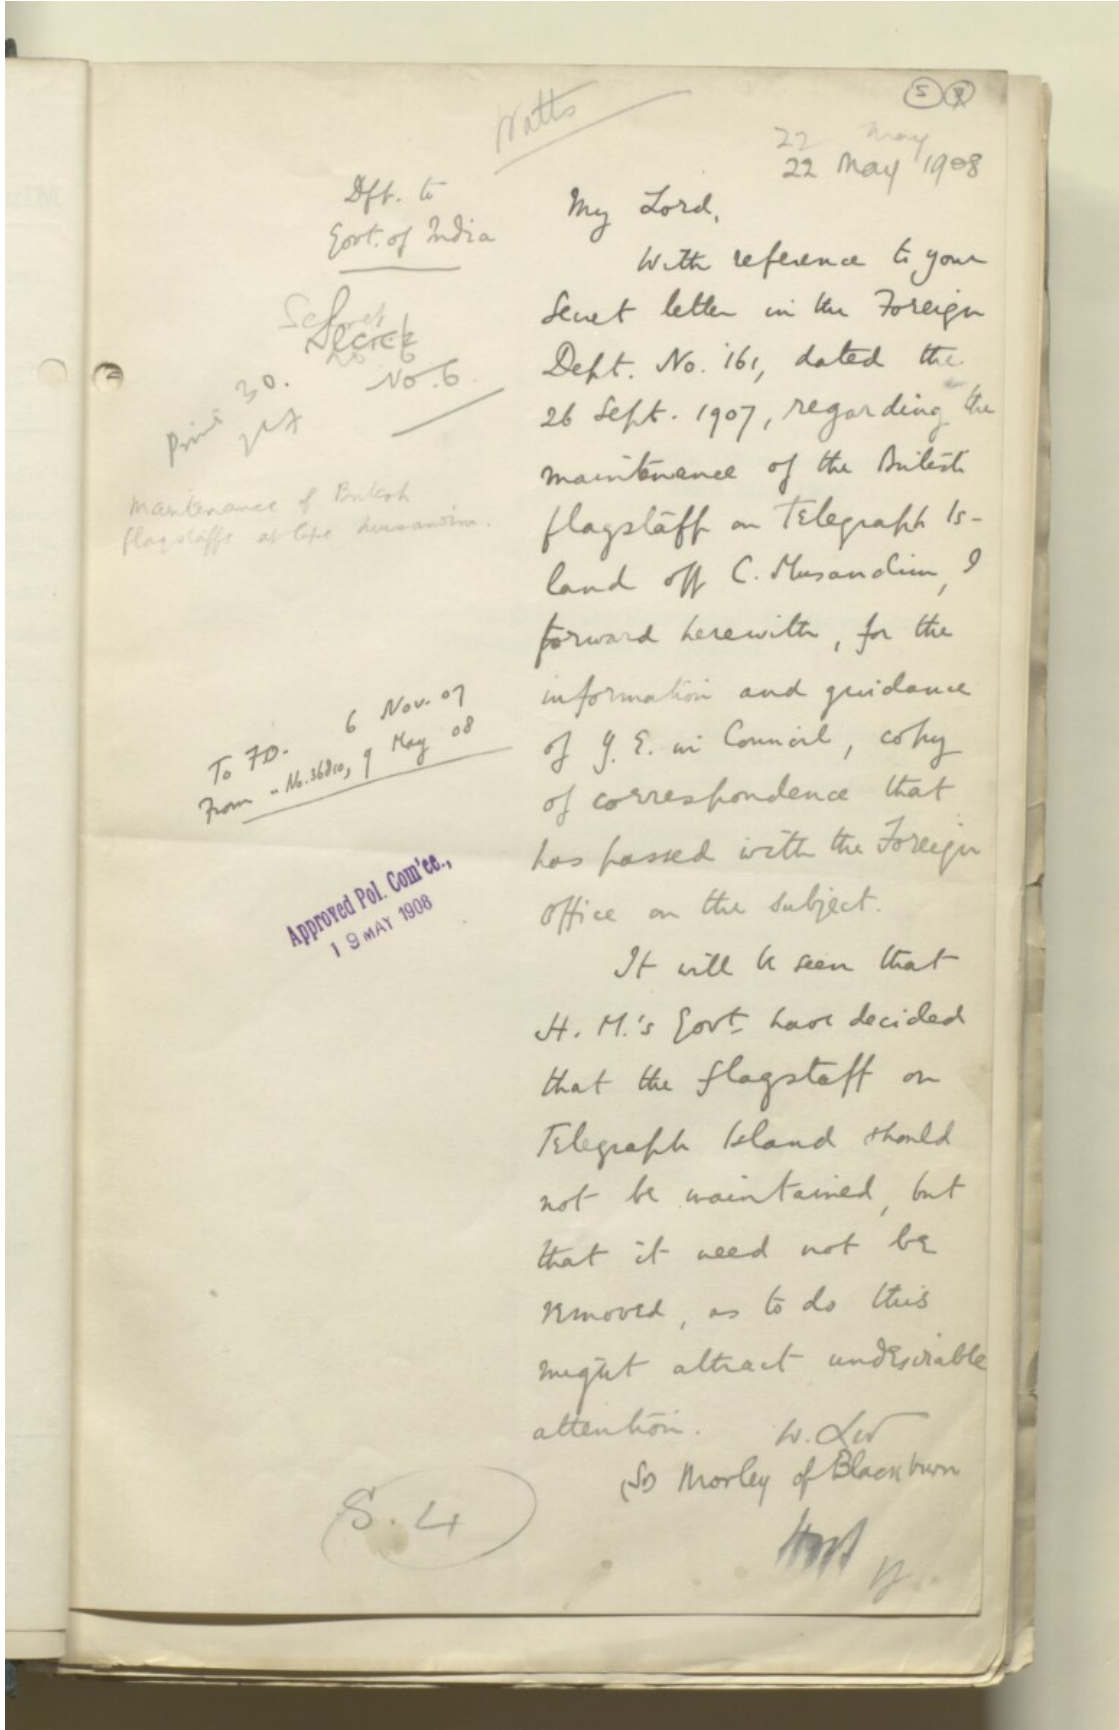 5
Watts
22 May
22 May 1908
Dft. to
Govt. of India
Secret
Secret
No. 6
No. 6
Print 30.
Maintenance of British
flagstaffs at Cape Musandim.
To FO. 6 Nov. 07
From " No. 36810, 9 May 08
Approved Pol. Com'ee.,
19 MAY 1908
My Lord,
With reference to your
Secret letter in the Foreign
Dept. No. 161, dated the
26 Sept. 1907, regarding the
maintenance of the British
flagstaff on Telegraph Is-
land off C. Musandim, I
forward herewith, for the
information and guidance
of Y. E. in Council, copy
of correspondence that
has passed with the Foreign
Office on the subject.
It will be seen that
H. M.'s Govt. have decided
that the flagstaff on
Telegraph Island should
not be maintained, but
that it need not be
removed, as to do this
might attract undesirable
attention.
(Sd) Morley of Blackburn
S. 4